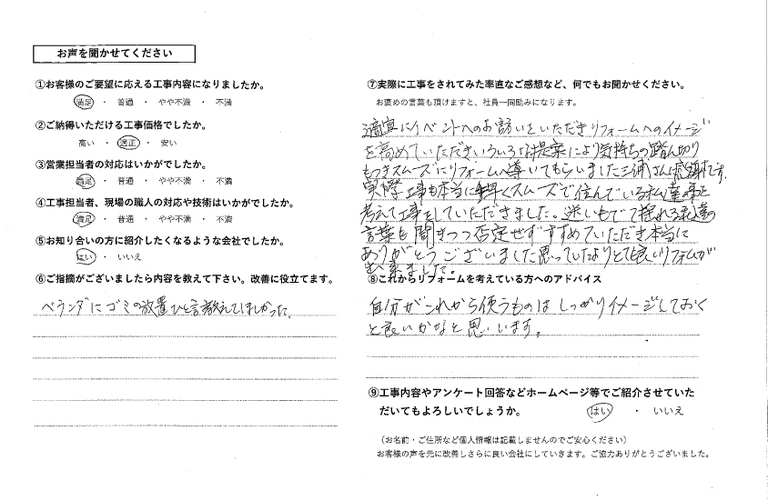 お声を聞かせてください
①お客様のご要望に応える工事内容になりましたか。
満足 ・ 普通 ・ やや不満 ・ 不満
②ご納得いただける工事価格でしたか。
高い ・ 適正 ・ 安い
③営業担当者の対応はいかがでしたか。
満足 ・ 普通 ・ やや不満 ・ 不満
④工事担当者、現場の職人の対応や技術はいかがでしたか。
満足 ・ 普通 ・ やや不満 ・ 不満
⑤お知り合いの方に紹介したくなるような会社でしたか。
はい ・ いいえ
⑥ご指摘がございましたら内容を教えて下さい。改善に役立てます。
ベランダにゴミの放置ひと言教えてほしかった。
⑦実際に工事をされてみた率直なご感想など、何でもお聞かせください。
お褒めの言葉も頂けますと、社員一同励みになります。
適宜にイベントへのお誘いをいただきリフォームへのイメージ
を高めていただきいろいろな提案により気持ちの踏ん切り
もつきスムーズにリフォームへ導いてもらいました三浦さんに感謝です。
実際工事も本当に手早くスムーズで住んでいる私達の事を
考えて工事をしていただきました。迷いもでて揺れる私達の
言葉も聞きつつ否定せずすすめていただき本当に
ありがとうございました思っていたよりとても良いリフォームが
出来ました。
⑧これからリフォームを考えている方へのアドバイス
自分がこれから使うものはしっかりイメージしておく
と良いかなと思います。
⑨工事内容やアンケート回答などホームページ等でご紹介させていた
だいてもよろしいでしょうか。
はい ・ いいえ
（お名前・ご住所など個人情報は記載しませんのでご安心ください）
お客様の声を元に改善しさらに良い会社にしていきます。ご協力ありがとうございました。